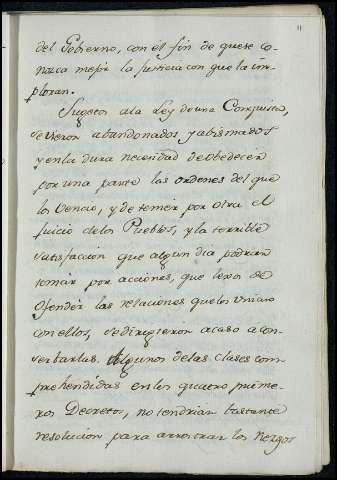 11
del Gobierno, con el fin de que se co-
nozca mejor la justicia con que la im-
ploran.
Sugetos ala Ley de una Conquista,
se vieron abandonados y abismados
y en la dura necesidad de obedecer
por una parte las ordenes del que
los Vencio, y de temer por otra el
juicio delos Pueblos, y la terrible
satisfaccion que algun dia podrian
tomar por acciones, que lexos de
Ofender las relaciones que los Unian
con ellos, se dirigieron acaso a con-
serbarlas. Algunos de las clases com-
prehendidas en los quatro prime-
ros Decretos, no tendrian bastante
resolucion para arrostrar los riezgos